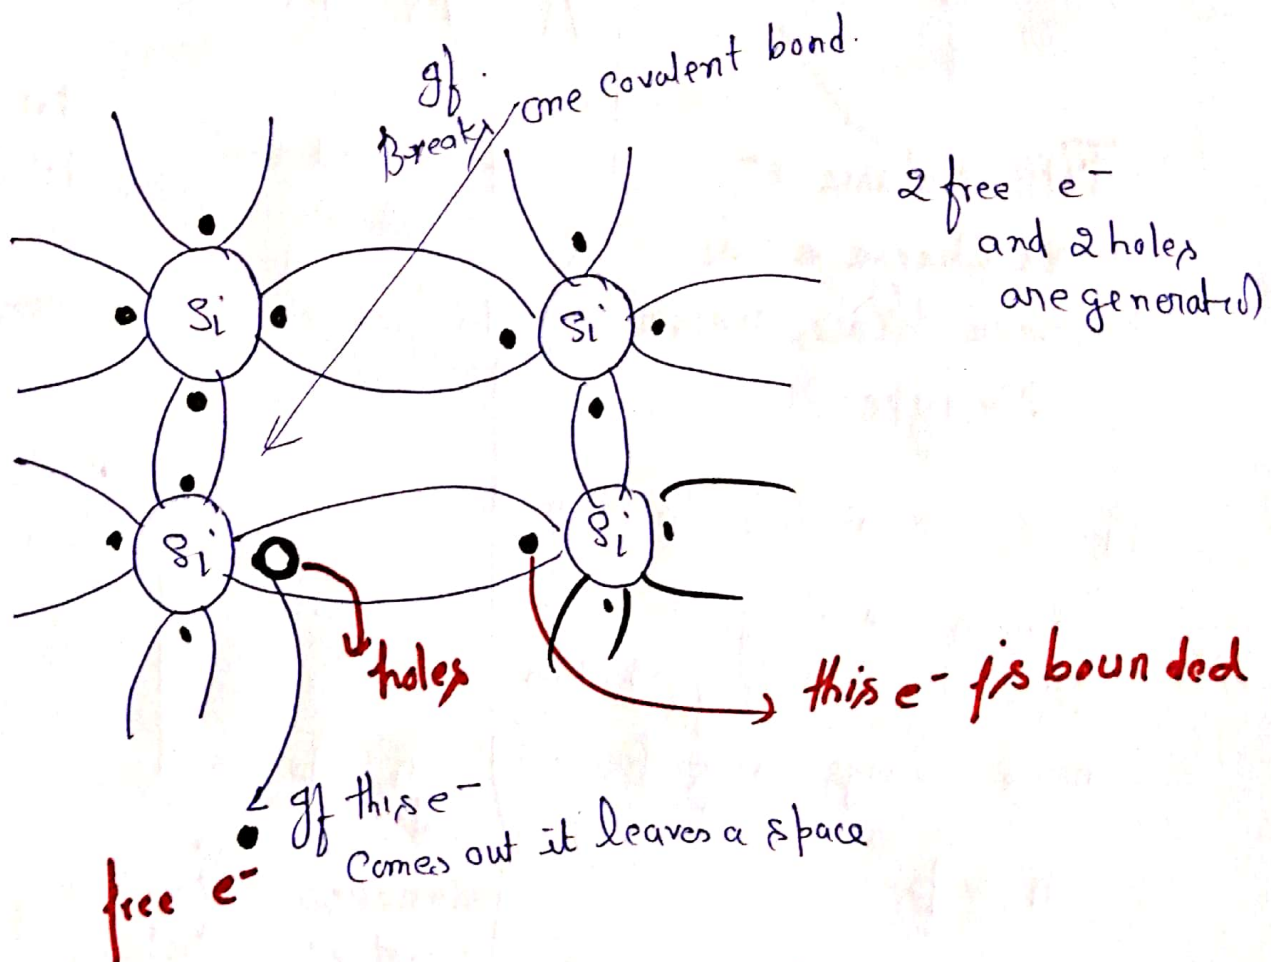 If
Breaks one covalent bond.
2 free e⁻
and 2 holes
are generated
Si
Si
Si
Si
holes
this e⁻ is bounded
If this e⁻
Comes out it leaves a space
free e⁻